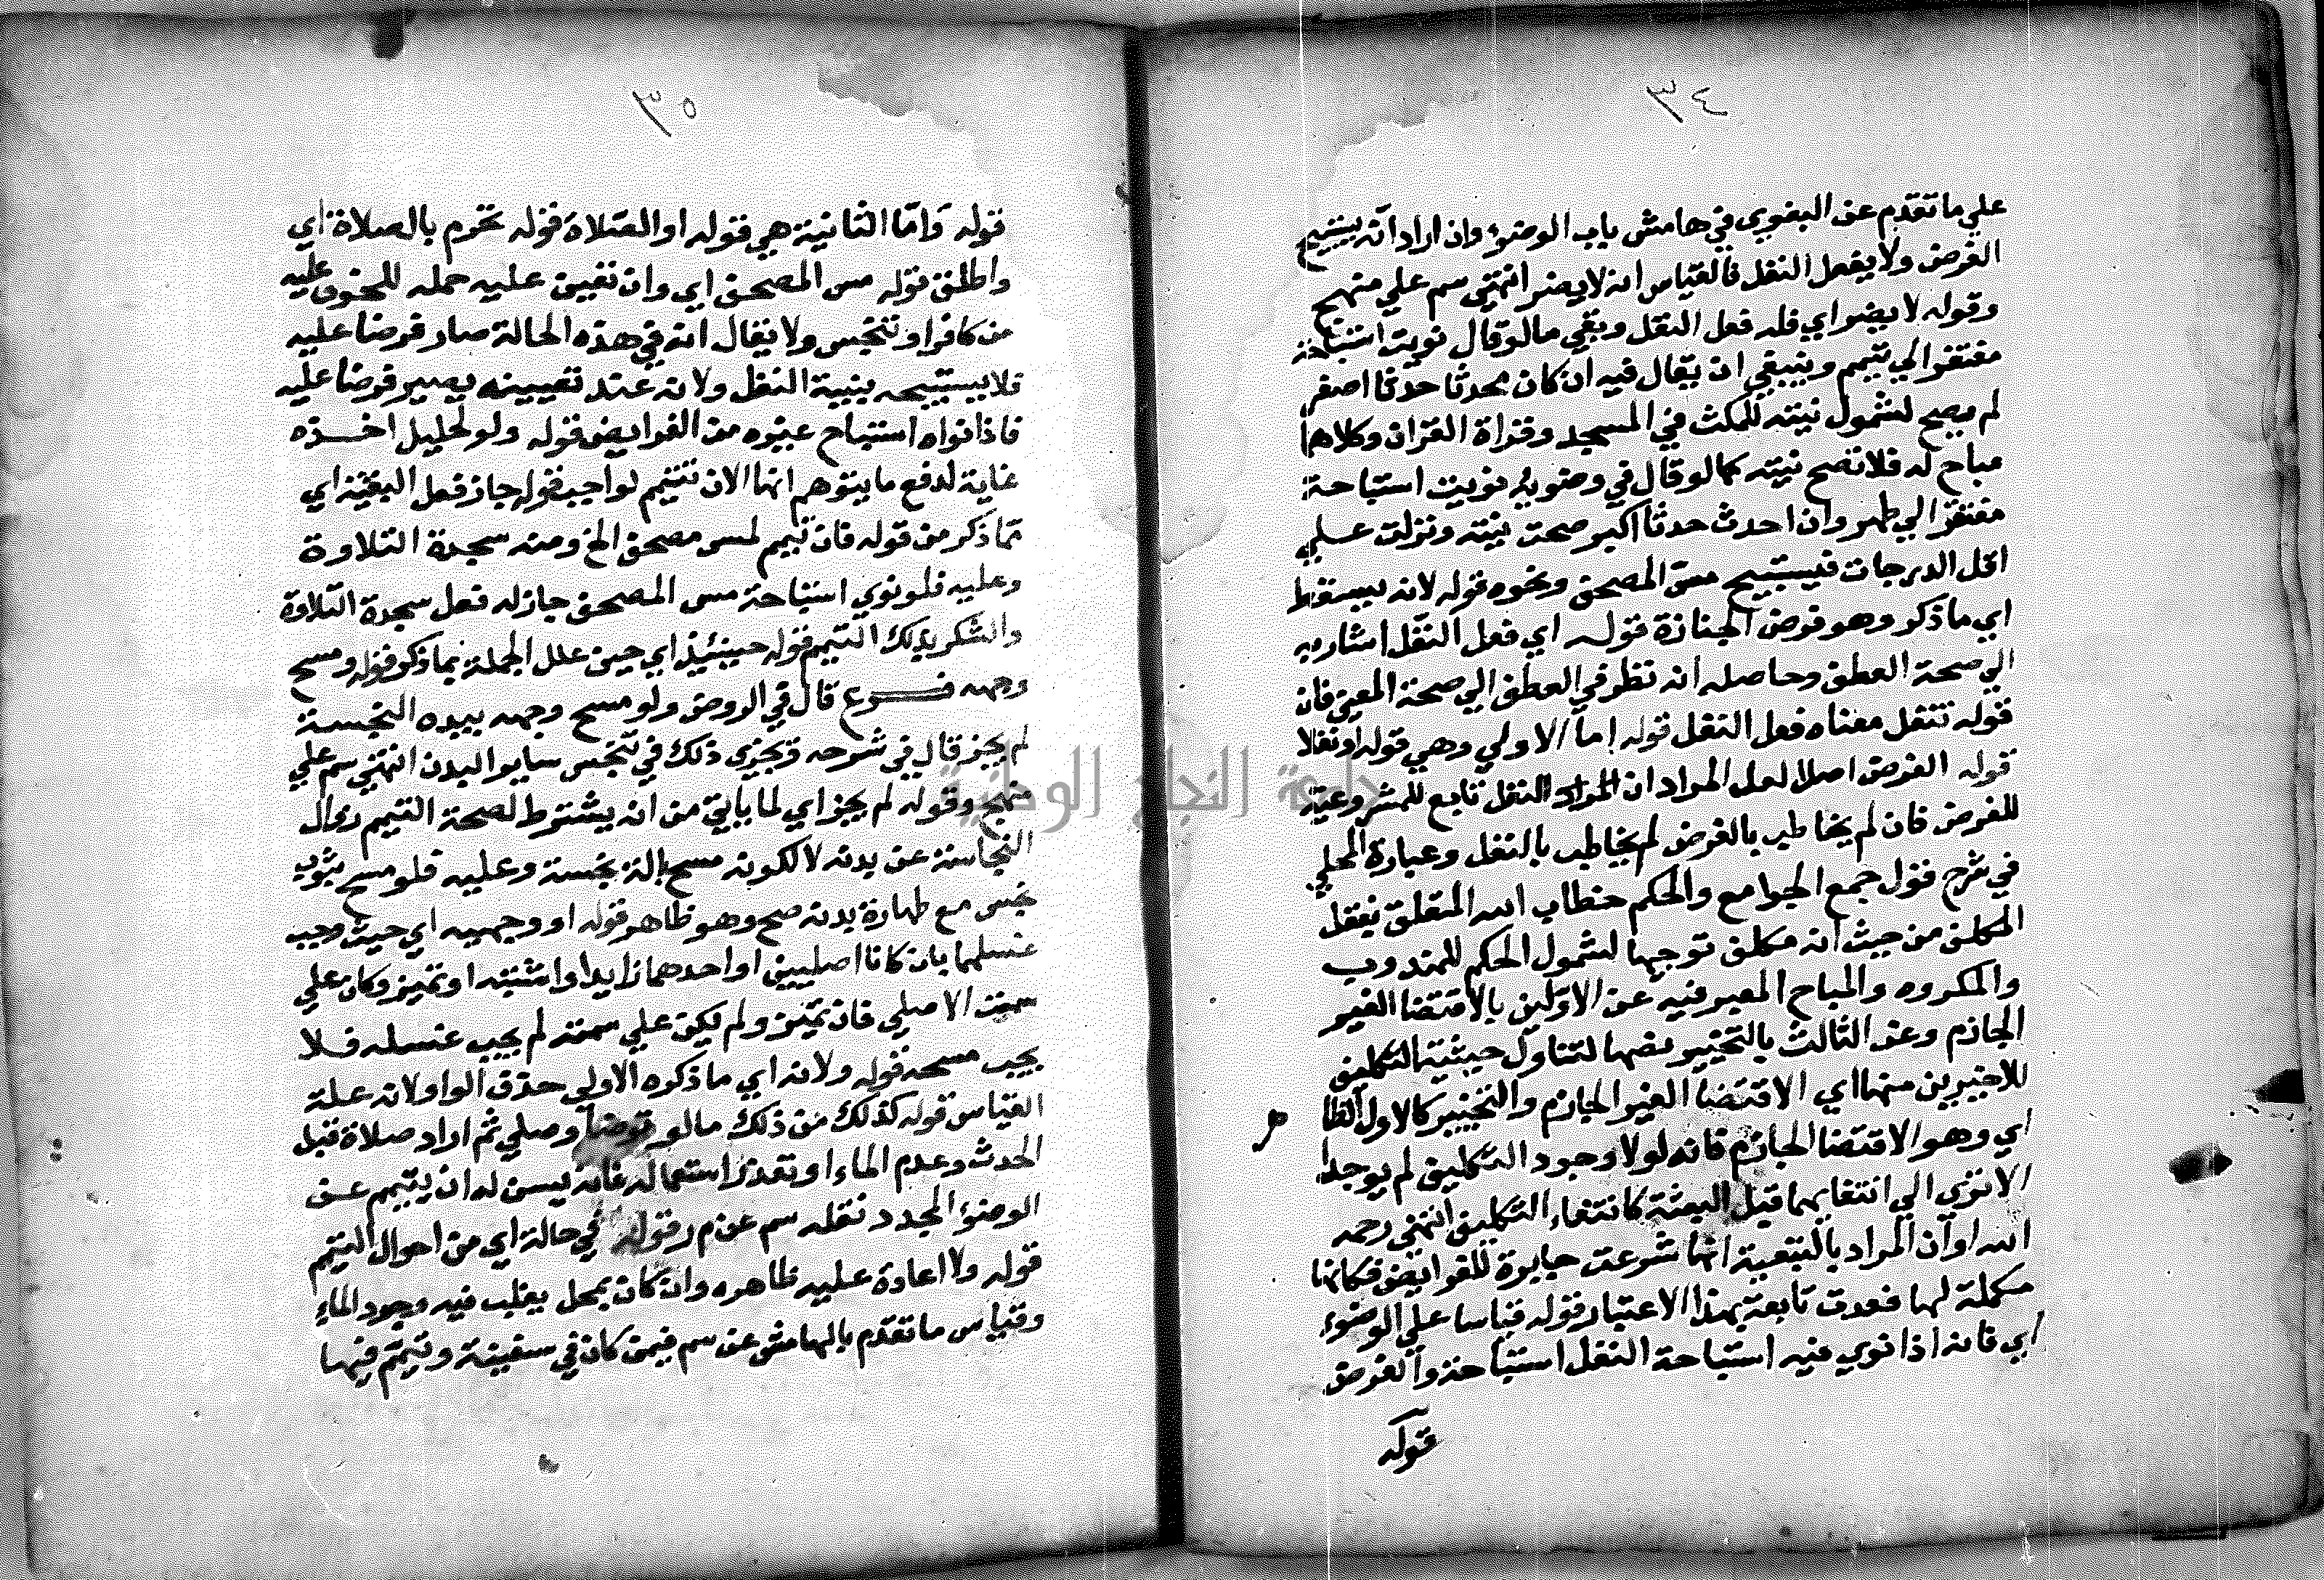 ٣٤
علي ما تقدم عن البغوي في هامش باب الوضوء وان اراد انه يستبيح
الفرض ولا يفعل النفل فالقياس انه لا يضر انتهي سم علي منهج
وقوله لا يضر اي فله فعل النفل وبقي ما لو قال نويت استباحة
مفتقر الي تيمم وينبغي ان يقال فيه ان كان محدثا حدثا اصغر
لم يصح لشمول نيته للمكث في المسجد وقراة القران وكلاهما
مباح له فلا تصح نيته كما لو قال في وضويه نويت استباحة
مفتقر الي طهر وان احدث حدثا اكبر صحت نيته ونزلت علي
اقل الدرجات فيستبيح مس المصحف ونحوه قوله لانه يسقط
اي ما ذكر وهو فرض الجنازة قوله اي فعل النفل اشار به
الي صحة العطف وحاصله انه نظر في العطف الي صحة المعني فان
قوله تنفل معناه فعل النفل قوله اما الاولي وهي قوله او نفلا
قوله الفرض اصلا لعل المراد ان المراد النفل تابع للمشروعية
للفرض فان لم يخاطب بالفرض لم يخاطب بالنفل وعبارة المحلي
في شرح قول جمع الجوامع والحكم خطاب الله المتعلق بفعل
المكلف من حيث انه مكلف توجيها لشمول الحكم للمندوب
والمكروه والمباح المعبر فيه عن الاولين بالاقتضا الغير
الجازم وعن الثالث بالتخيير نصها لتناول حيثية التكليف
للاخيرين منها اي الاقتضا الغير الجازم والتخيير كالاول الظا
هر
اي وهو الاقتضا الجازم فانه لولا وجود التكليف لم يوجدا
الا تري الي انتفايهما قبل البعثة كانتفاء التكليف انتهي رحمه
الله او ان المراد بالتبعية انها شرعت جابرة للفرايض فكانها
مكملة لها فعدت تابعة بهذا الاعتبار قوله قياسا علي الوضوء
اي فانه اذا نوي فيه استباحة النفل استباحه والفرض
قوله
٣٥
قوله واما الثانية هي قوله او الصلاة قوله تحرم بالصلاة اي
واطلق قوله مس المصحف اي وان تعين عليه حمله للخوف عليه
من كافر او تنجس ولا يقال انه في هذه الحالة صار فرضا عليه
فلا يستبيحه بنية النفل ولانه عند تعيينه يصير فرضا عليه
فاذا نواه استباح غيره من الفرايض قوله ولو لحليل اخذه
غاية لدفع ما يتوهم انها الان تتيمم لواجب قوله جاز فعل البقية اي
مما ذكر من قوله فان تيمم لمس مصحف الخ ومنه سجدة التلاوة
وعليه فلو نوي استباحة مس المصحف جاز له فعل سجدة التلاوة
والشكر بذلك التيمم قوله حينئذ اي حين علل الجملة بما ذكر قوله ومسح
وجهه فرع قال في الروض ولو مسح وجهه بيده النجسة
لم يجز قال في شرحه ويجزي ذلك في تنجس ساير البدن انتهي سم علي
منهج وقوله لم يجز اي لما ياتي من انه يشترط لصحة التيمم زوال
النجاسة عن بدنه لا لكونه مسح بالة نجسة وعليه فلو مسح بثوب
نجس مع طهارة بدنه صح وهو ظاهر قوله او وجهيه اي حيث وجب
غسلهما بان كانا اصليين او احدهما زايدا واشتبه او تميز وكان علي
سمت الاصلي فان تميز ولم يكن علي سمته لم يجب غسله فلا
يجب مسحه قوله ولانه اي ما ذكره الاولي حذف الواو لانه علة
القياس قوله كذلك من ذلك ما لو توضا وصلي ثم اراد صلاة قبل
الحدث وعدم الماء او تعذر استعماله فانه يسن له ان يتيمم عن
الوضوء المجدد نقله سم عن م ر قوله في حالة اي من احوال التيمم
قوله ولا اعادة عليه ظاهره وان كان بمحل يغلب فيه وجود الماء
وقياس ما تقدم بالهامش عن سم فيمن كان في سفينة وتيمم فيها